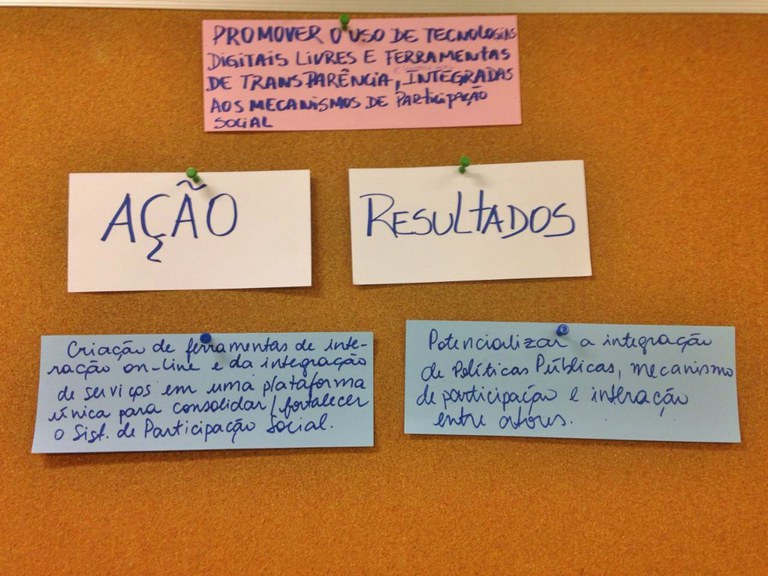 PROMOVER O USO DE TECNOLOGIAS
DIGITAIS LIVRES E FERRAMENTAS
DE TRANSPARÊNCIA, INTEGRADAS
AOS MECANISMOS DE PARTICIPAÇÃO
SOCIAL
AÇÃO
RESULTADOS
Criação de ferramentas de inte-
ração on-line e da integração
de serviços em uma plataforma
única para consolidar/fortalecer
o Sist. de Participação Social.
Potencializar a integração
de Políticas Públicas, mecanismo
de participação e interação
entre atores.